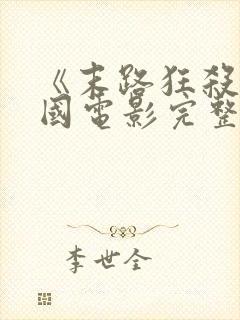 《末路狂殺
國電影完整
李世全